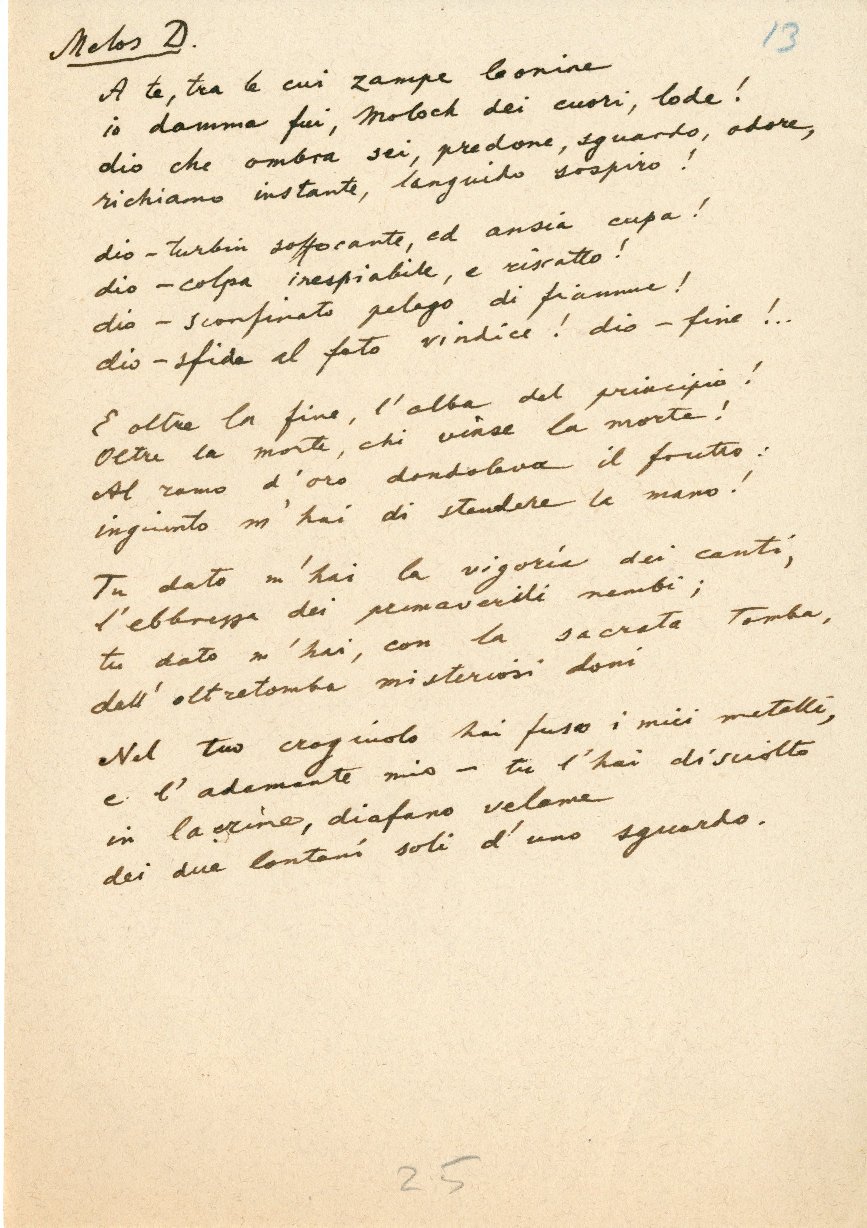 Melos D.
13
A te, tra le cui zampe leonine
io damma fui, Moloch dei cuori, lode!
dio che ombra sei, predone, sguardo, odore,
richiamo instante, languido sospiro!
dio-turbin soffocante, ed ansia cupa!
dio-colpa inespiabile, e riscatto!
dio-sconfinato pelago di fiamme!
dio-sfida al fato vindice! dio-fine!..
E oltre la fine, l'alba del principio!
Oltre la morte, chi vinse la morte!
Al ramo d'oro dondolava il frutto:
ingiunto m'hai di stendere la mano!
Tu dato m'hai la vigoria dei canti,
l'ebbrezza dei primaverili nembi;
tu dato m'hai, con la sacrata tomba,
dell'oltretomba misteriosi doni
Nel tuo crogiuolo hai fuso i miei metalli,
e l'adamante mio - tu l'hai disciolto
in lacrime, diafano velame
dei due lontani soli d'uno sguardo.
25